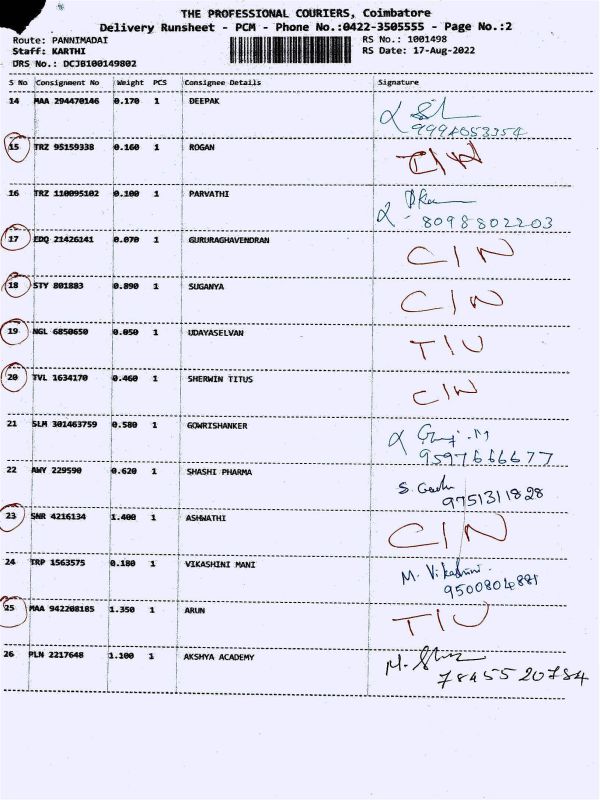 THE PROFESSIONAL COURIERS, Coimbatore
Delivery Runsheet - PCM - Phone No.:0422-3505555 - Page No.:2
Route: PANNIMADAI RS No.: 1001498
Staff: KARTHI RS Date: 17-Aug-2022
DRS No.: DCJB100149802
S No Consignment No Weight PCS Consignee Details Signature
14 MAA 294470146 0.170 1 DEEPAK
9994053354
15 TRZ 95159338 0.160 1 ROGAN C/N
16 TRZ 110095102 0.100 1 PARVATHI
8098802203
17 EDQ 21426141 0.070 1 GURURAGHAVENDRAN C/N
18 STY 801883 0.890 1 SUGANYA C/N
19 NGL 6850650 0.050 1 UDAYASELVAN T/U
20 TVL 1634170 0.460 1 SHERWIN TITUS C/N
21 SLM 301463759 0.580 1 GOWRISHANKER
9597666677
22 AWY 229590 0.620 1 SHASHI PHARMA
9751311828
23 SNR 4216134 1.400 1 ASHWATHI C/N
24 TRP 1563575 0.180 1 VIKASHINI MANI M. Vikashini.
9500804881
25 MAA 942208185 1.350 1 ARUN T/U
26 PLN 2217648 1.100 1 AKSHYA ACADEMY
7845520784